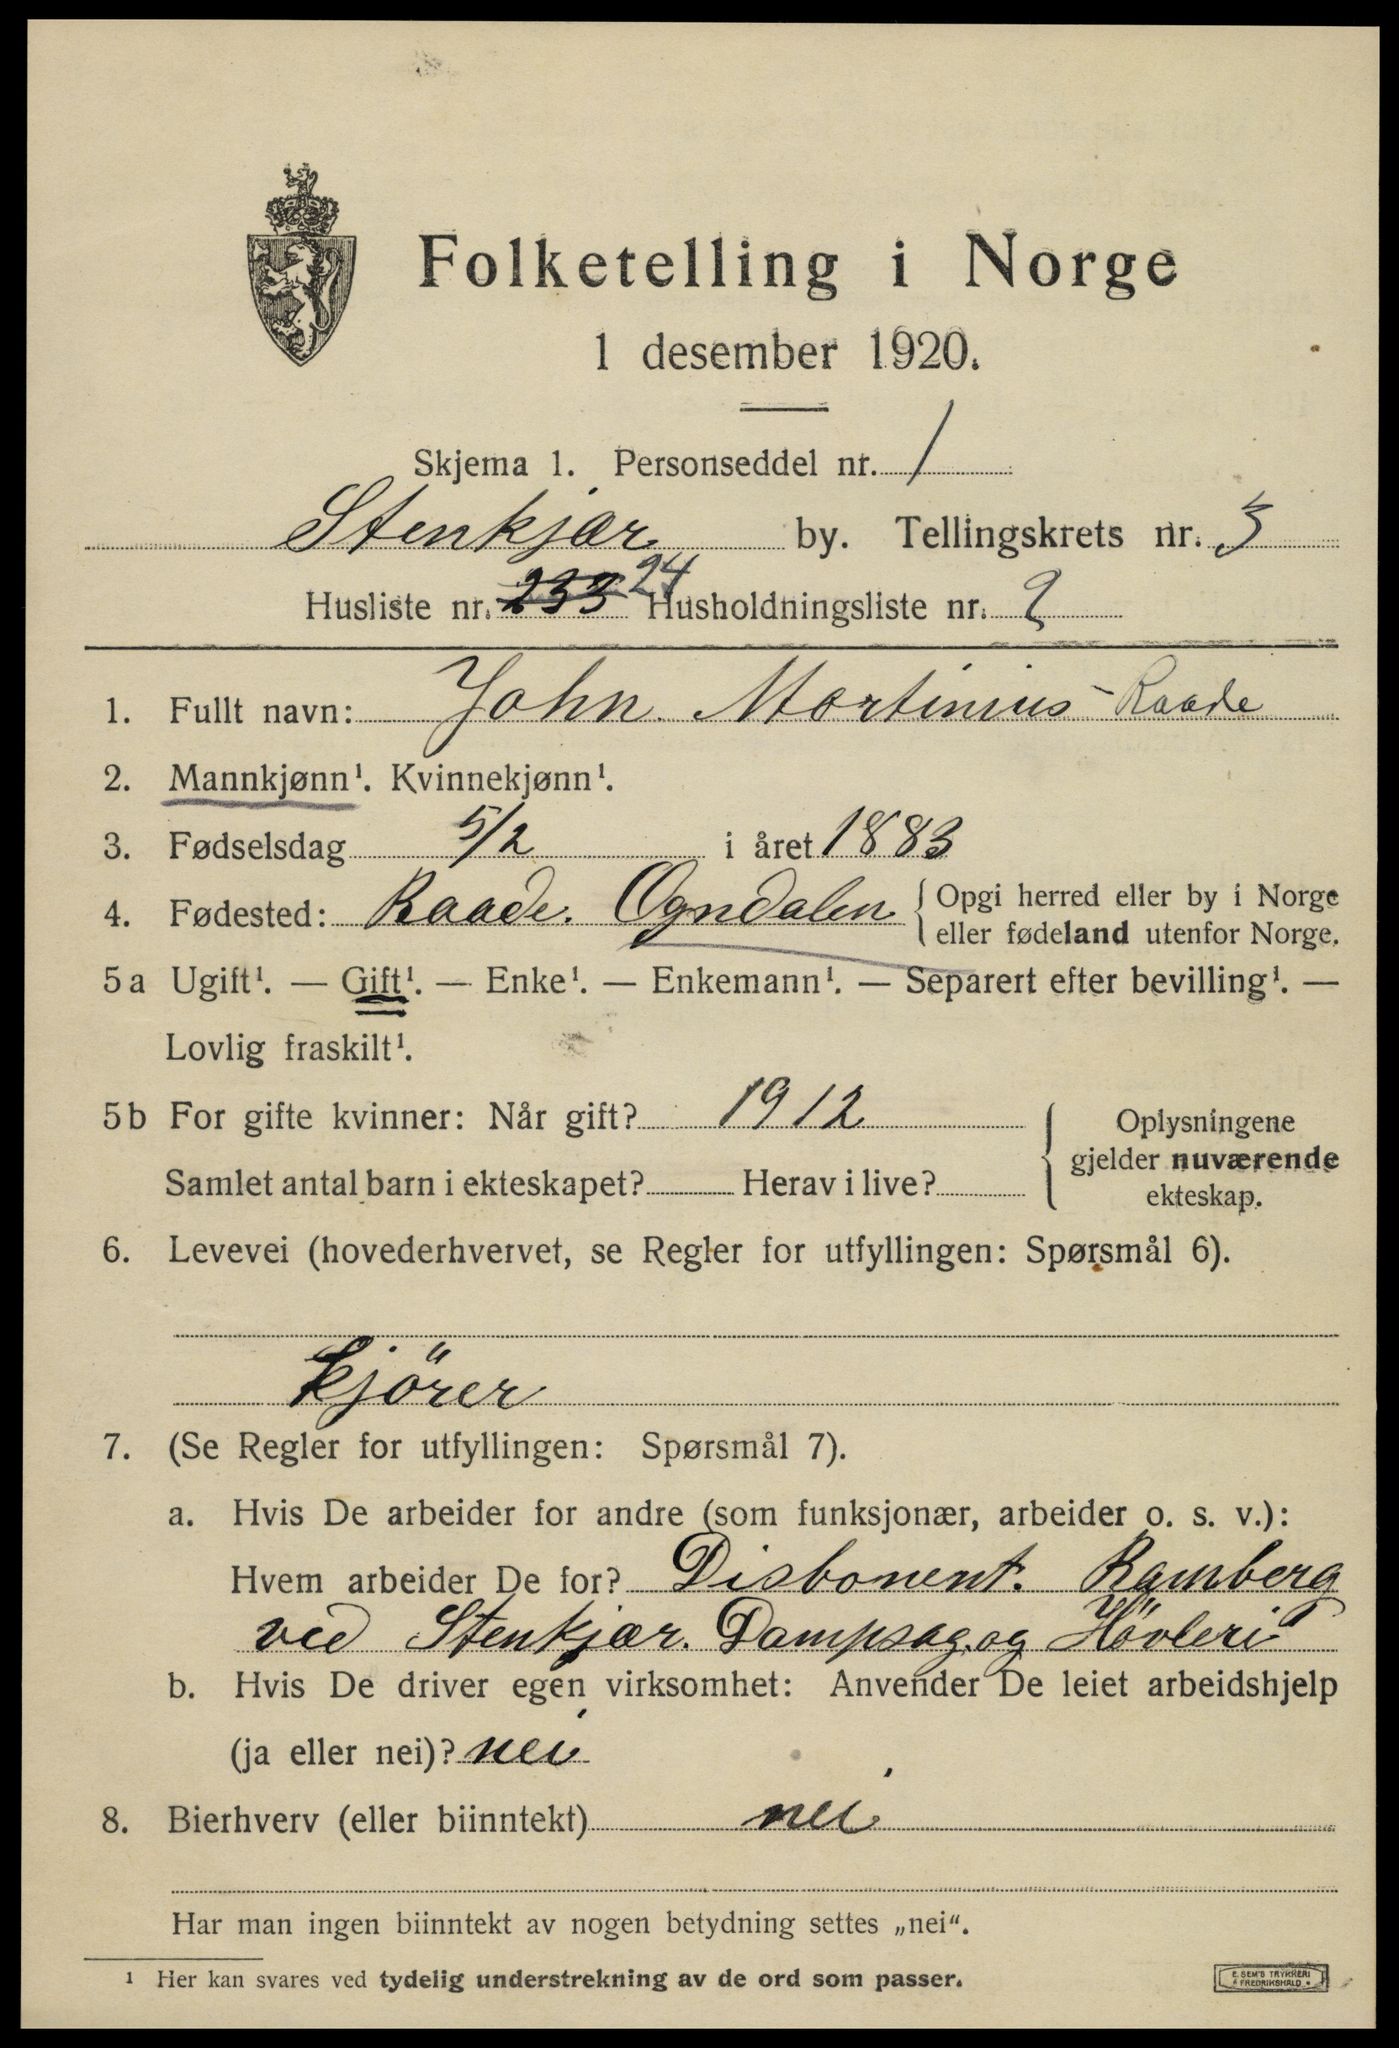 Folketelling i Norge
1 desember 1920.
Skjema 1. Personseddel nr. 1
Stenkjær by. Tellingskrets nr. 3
Husliste nr. 233 24 Husholdningsliste nr. 2
1. Fullt navn: John Martinius Raade
2. Mannkjønn¹. Kvinnekjønn¹.
3. Fødselsdag 5/2 i året 1883
4. Fødested: Raade. Ogndalen { Opgi herred eller by i Norge
eller fødeland utenfor Norge.
5a Ugift¹. — Gift¹. — Enke¹. — Enkemann¹. — Separert efter bevilling¹. —
Lovlig fraskilt¹.
5b For gifte kvinner: Når gift? 1912
Samlet antal barn i ekteskapet? Herav i live?
{ Oplysningene
gjelder nuværende
ekteskap.
6. Levevei (hovederhvervet, se Regler for utfyllingen: Spørsmål 6).
kjörer
7. (Se Regler for utfyllingen: Spørsmål 7).
a. Hvis De arbeider for andre (som funksjonær, arbeider o. s. v.):
Hvem arbeider De for? Disbonent. Ramberg
ved Stenkjær. Dampsag. og Hövleri
b. Hvis De driver egen virksomhet: Anvender De leiet arbeidshjelp
(ja eller nei)? nei
8. Bierhverv (eller biinntekt) nei
Har man ingen biinntekt av nogen betydning settes „nei“.
¹ Her kan svares ved tydelig understrekning av de ord som passer.
E. SEM'S TRYKKERI
FREDRIKSHALD